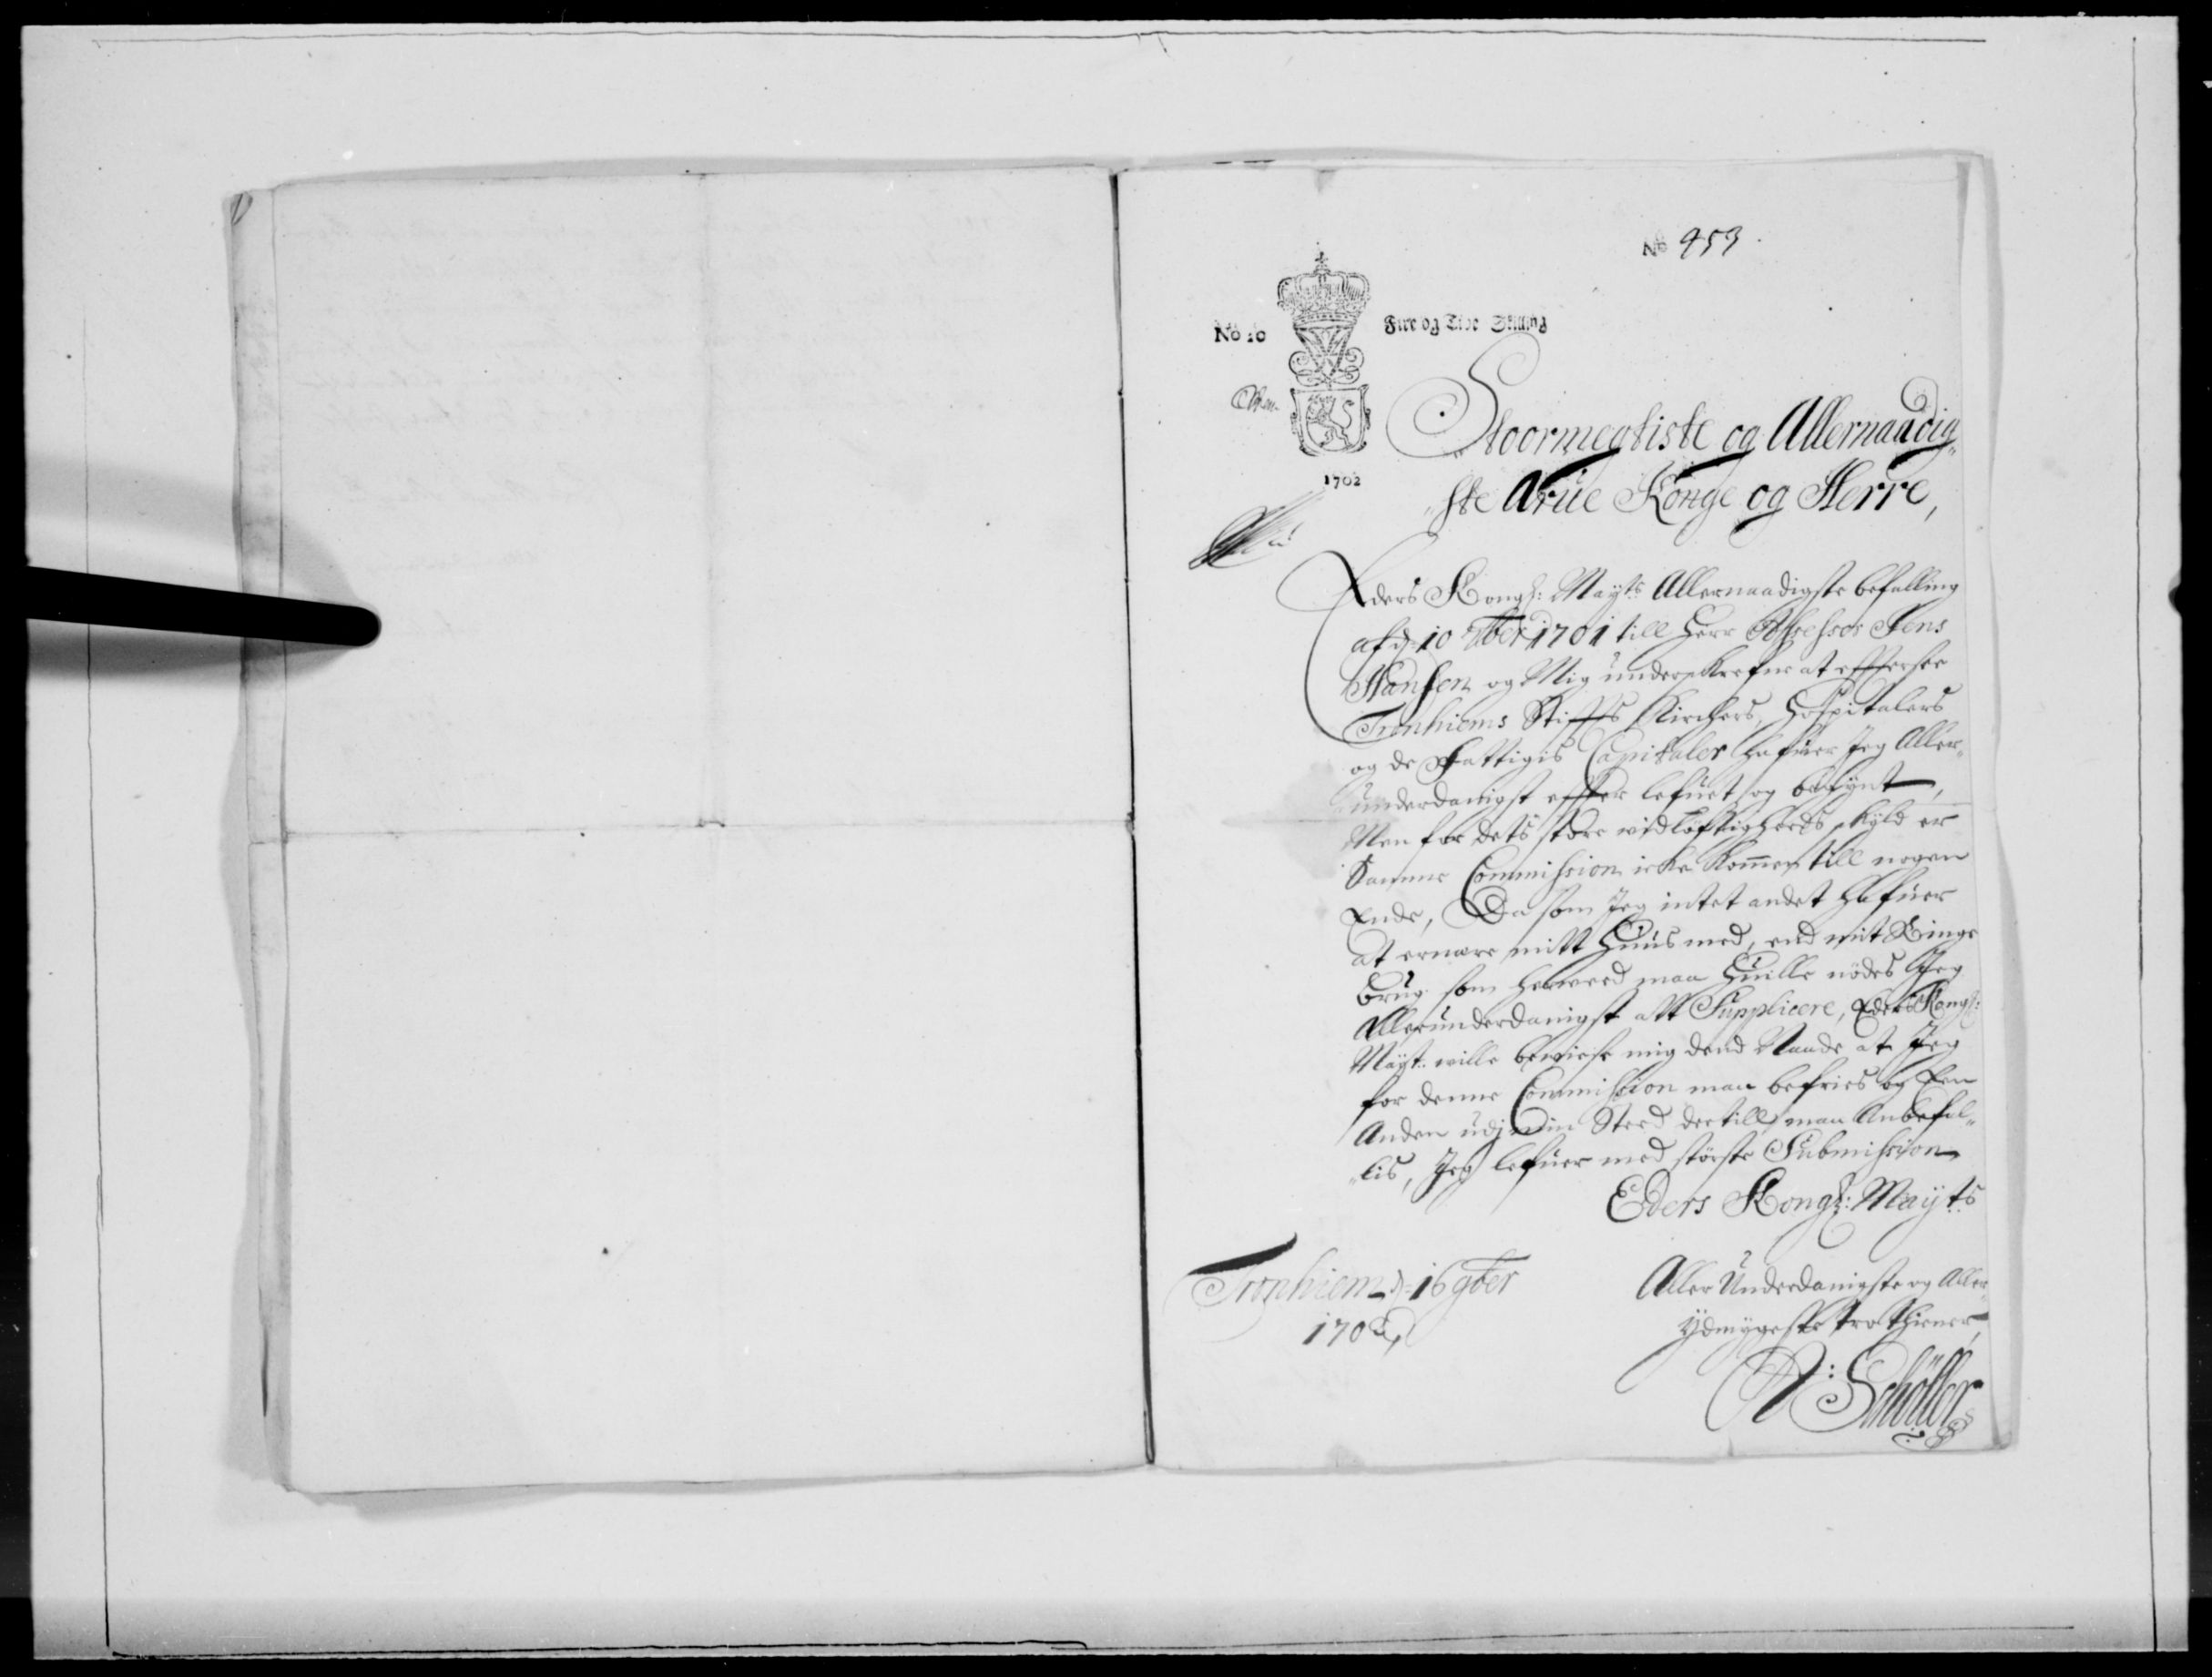 No 953.
No 10
Fire og Tive Skilling
1702
Stoormegtiste og Allernaadig„
„ste Arfue Konge og Herre,
Eders Kongl: Mayts Allernaadigste befalling
af d. 10 xber 1701 till Herr Assessor Jens
Hansen og Mig underskrefne at effersee
Tronhiems Stiffts Kirchers, Hospitalers
og de Fattigis Capitaler hafuer Jeg Aller„
underdanigst effter lefuet og begÿnt,
Men for dets store vidløftigheds skÿld er
Samme Commission icke kommen till nogen
Ende, Da som Jeg intet andet hafuer
at ernære mitt Huus med, end mit Ringe
brug som herved maa Huille nødes Jeg
Allerunderdanigst att Supplicere, Eders Kongl:
Mayt: wille bewiese mig dend Naade at Jeg
for denne Commission maa befries og Een
Anden udj min Sted dertill maa Anbefal„
„lis, Jeg lefuer med største Submission
Eders Kongl: Maÿts
Tronhiem d. 16 9ber
1702
Aller Underdanigste og Aller„
ÿdmÿgeste tro thiener
A: Schøller